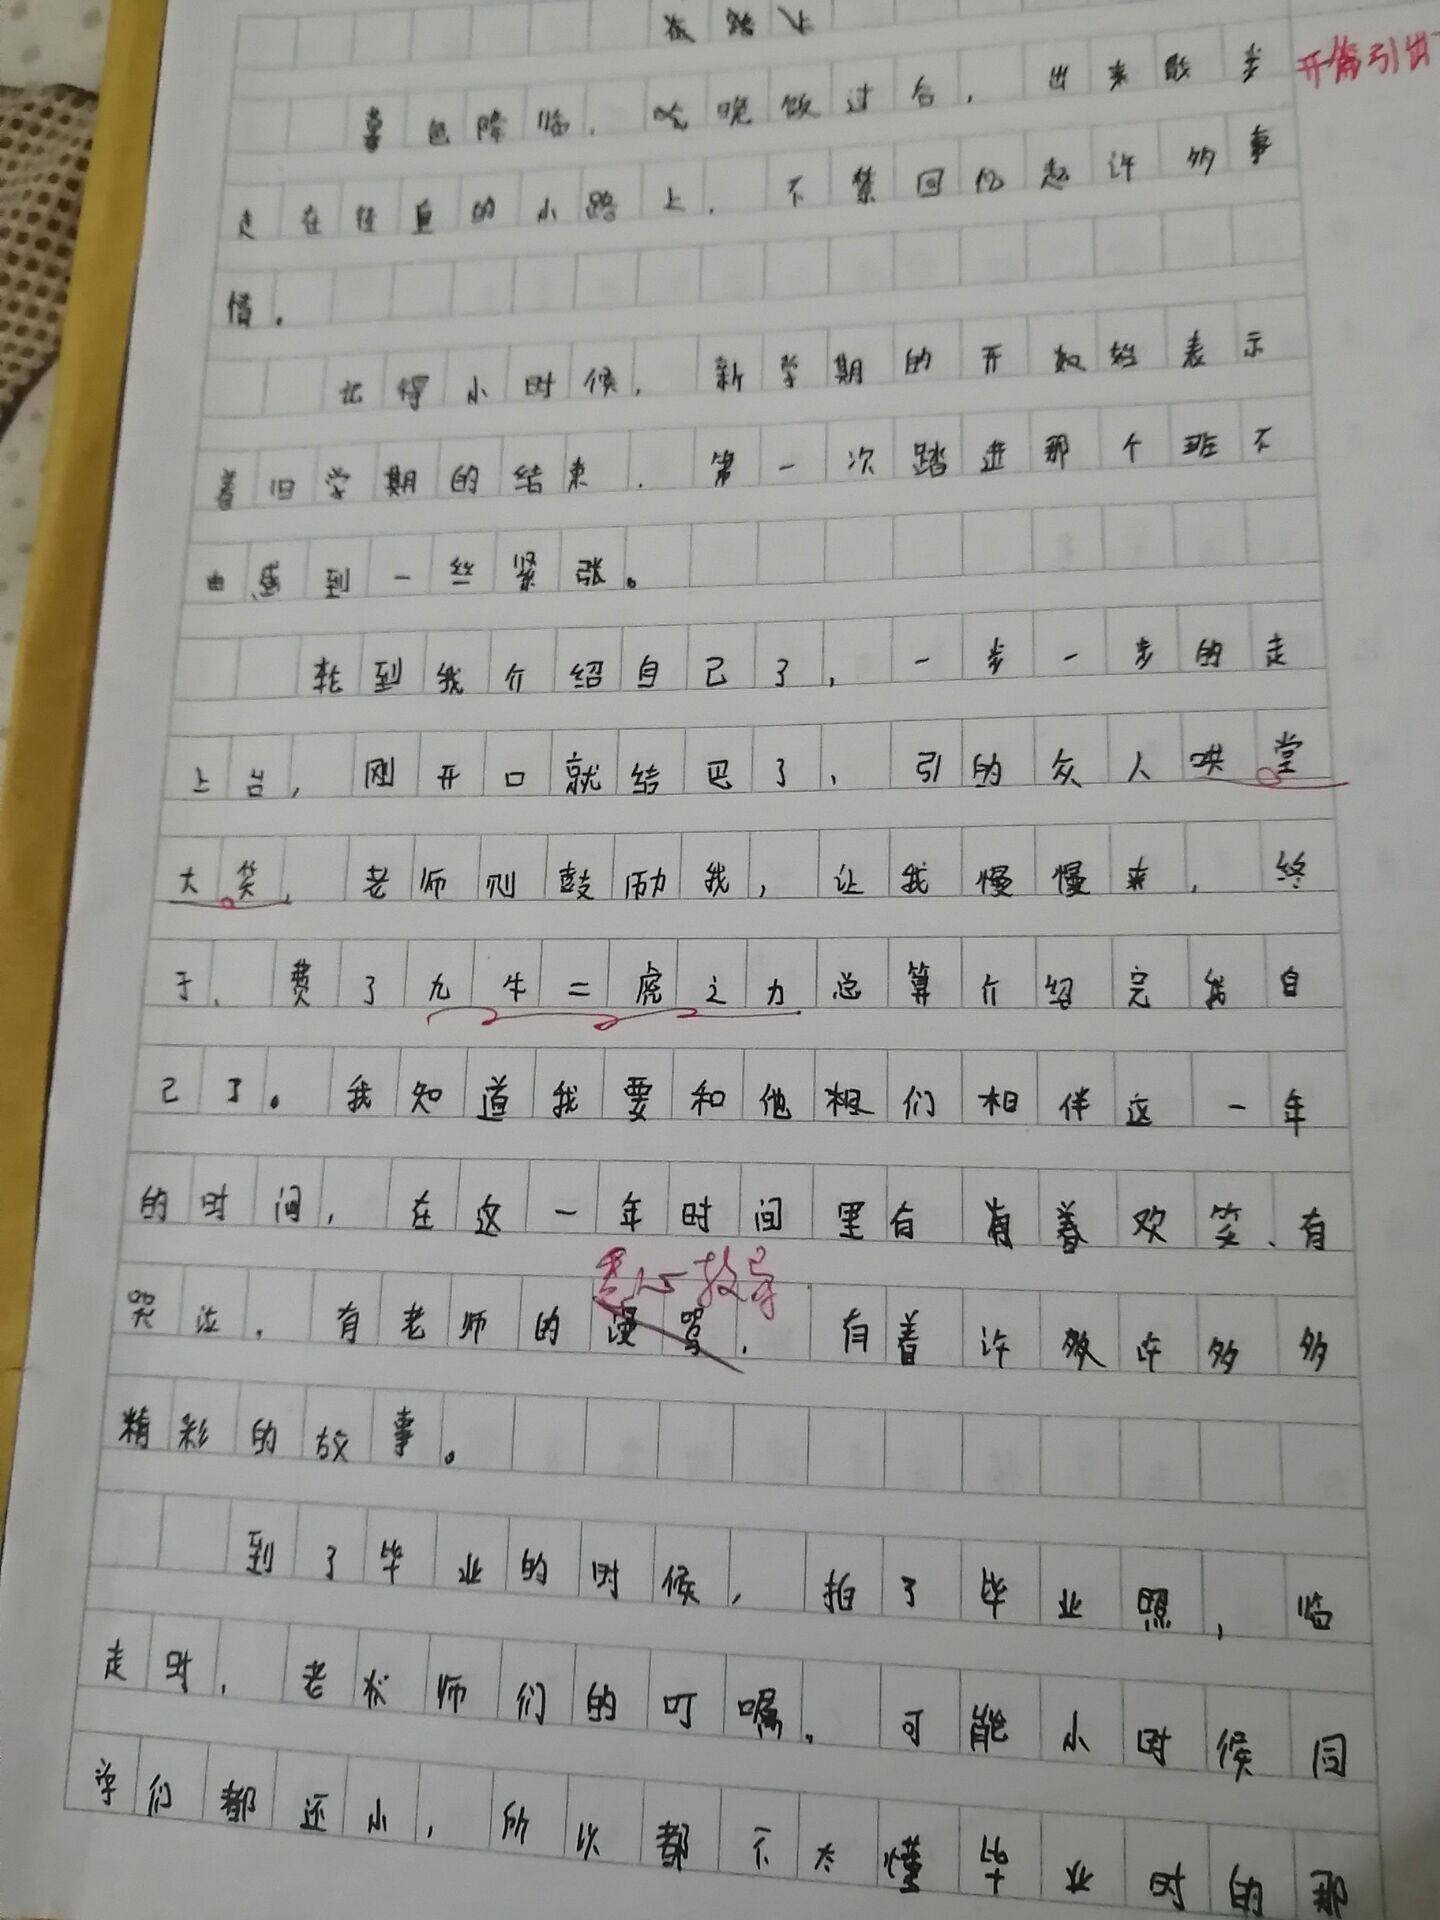 在路上
暮色降临，吃晚饭过后，出来散步
开篇引出
走在径直的小路上，不禁回忆起许多事
情。
记得小时候，新学期的开始表示
着旧学期的结束，第一次踏进那个班不
由感到一丝紧张。
轮到我介绍自己了，一步一步的走
上台，刚开口就结巴了，引的众人哄堂
大笑，老师则鼓励我，让我慢慢来，终
于，费了九牛二虎之力总算介绍完我自
己了。我知道我要和他们相伴这一年
的时间，在这一年时间里有有着欢笑、有
悉心教导
哭泣，有老师的谩骂，有着许多许多多
精彩的故事。
到了毕业的时候，拍了毕业照，临
走时，老师们的叮嘱。可能小时候同
学们都还小，所以都不太懂毕业时的那